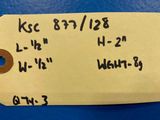 KSC 877/128
L-1/2" H-2"
W-1/2" WEIGHT-8g
QTY-3